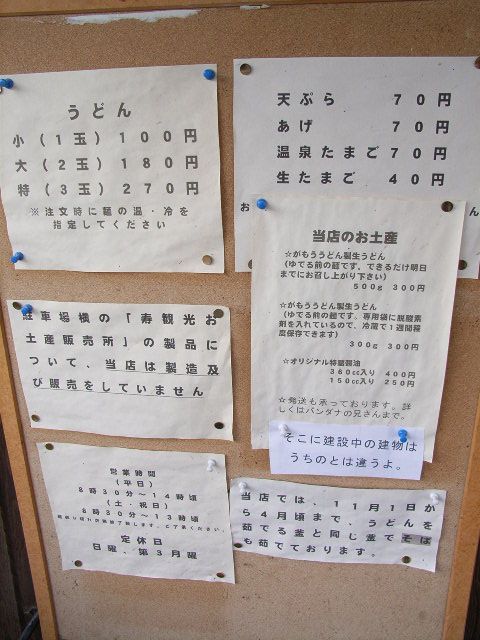 うどん
小(1玉)100円
大(2玉)180円
特(3玉)270円
※注文時に麺の温・冷を
指定してください
天ぷら 70円
あげ 70円
温泉たまご70円
生たまご 40円
当店のお土産
☆がもううどん製生うどん
(ゆでる前の麺です。できるだけ明日
までにお召し上がり下さい)
500g 300円
☆がもううどん製生うどん
(ゆでる前の麺です。専用袋に脱酸素
剤を入れているので、冷蔵で1週間程
度保存できます)
300g 300円
☆オリジナル特醸醤油
360cc入り 400円
150cc入り 250円
☆発送も承っております。詳
しくはバンダナの兄さんまで。
駐車場横の「寿観光お
土産販売所」の製品に
ついて、当店は製造及
び販売をしていません
そこに建設中の建物は
うちのとは違うよ。
営業時間
(平日)
8時30分~14時頃
(土・祝日)
8時30分~13時頃
定休日
日曜、第3月曜
当店では、11月1日か
ら4月頃まで、うどんを
茹でる釜と同じ釜でそば
も茹でております。